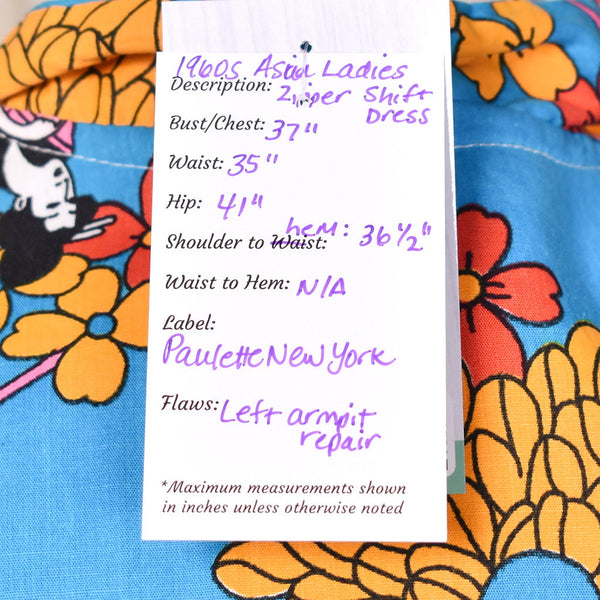 1960s Asian Ladies
Description: Zipper Shift
Dress
Bust/Chest: 37"
Waist: 35"
Hip: 41"
hem:
Shoulder to Waist: 36 1/2"
Waist to Hem: N/A
Label:
Paulette New York
Flaws: Left armpit
repair
*Maximum measurements shown
in inches unless otherwise noted